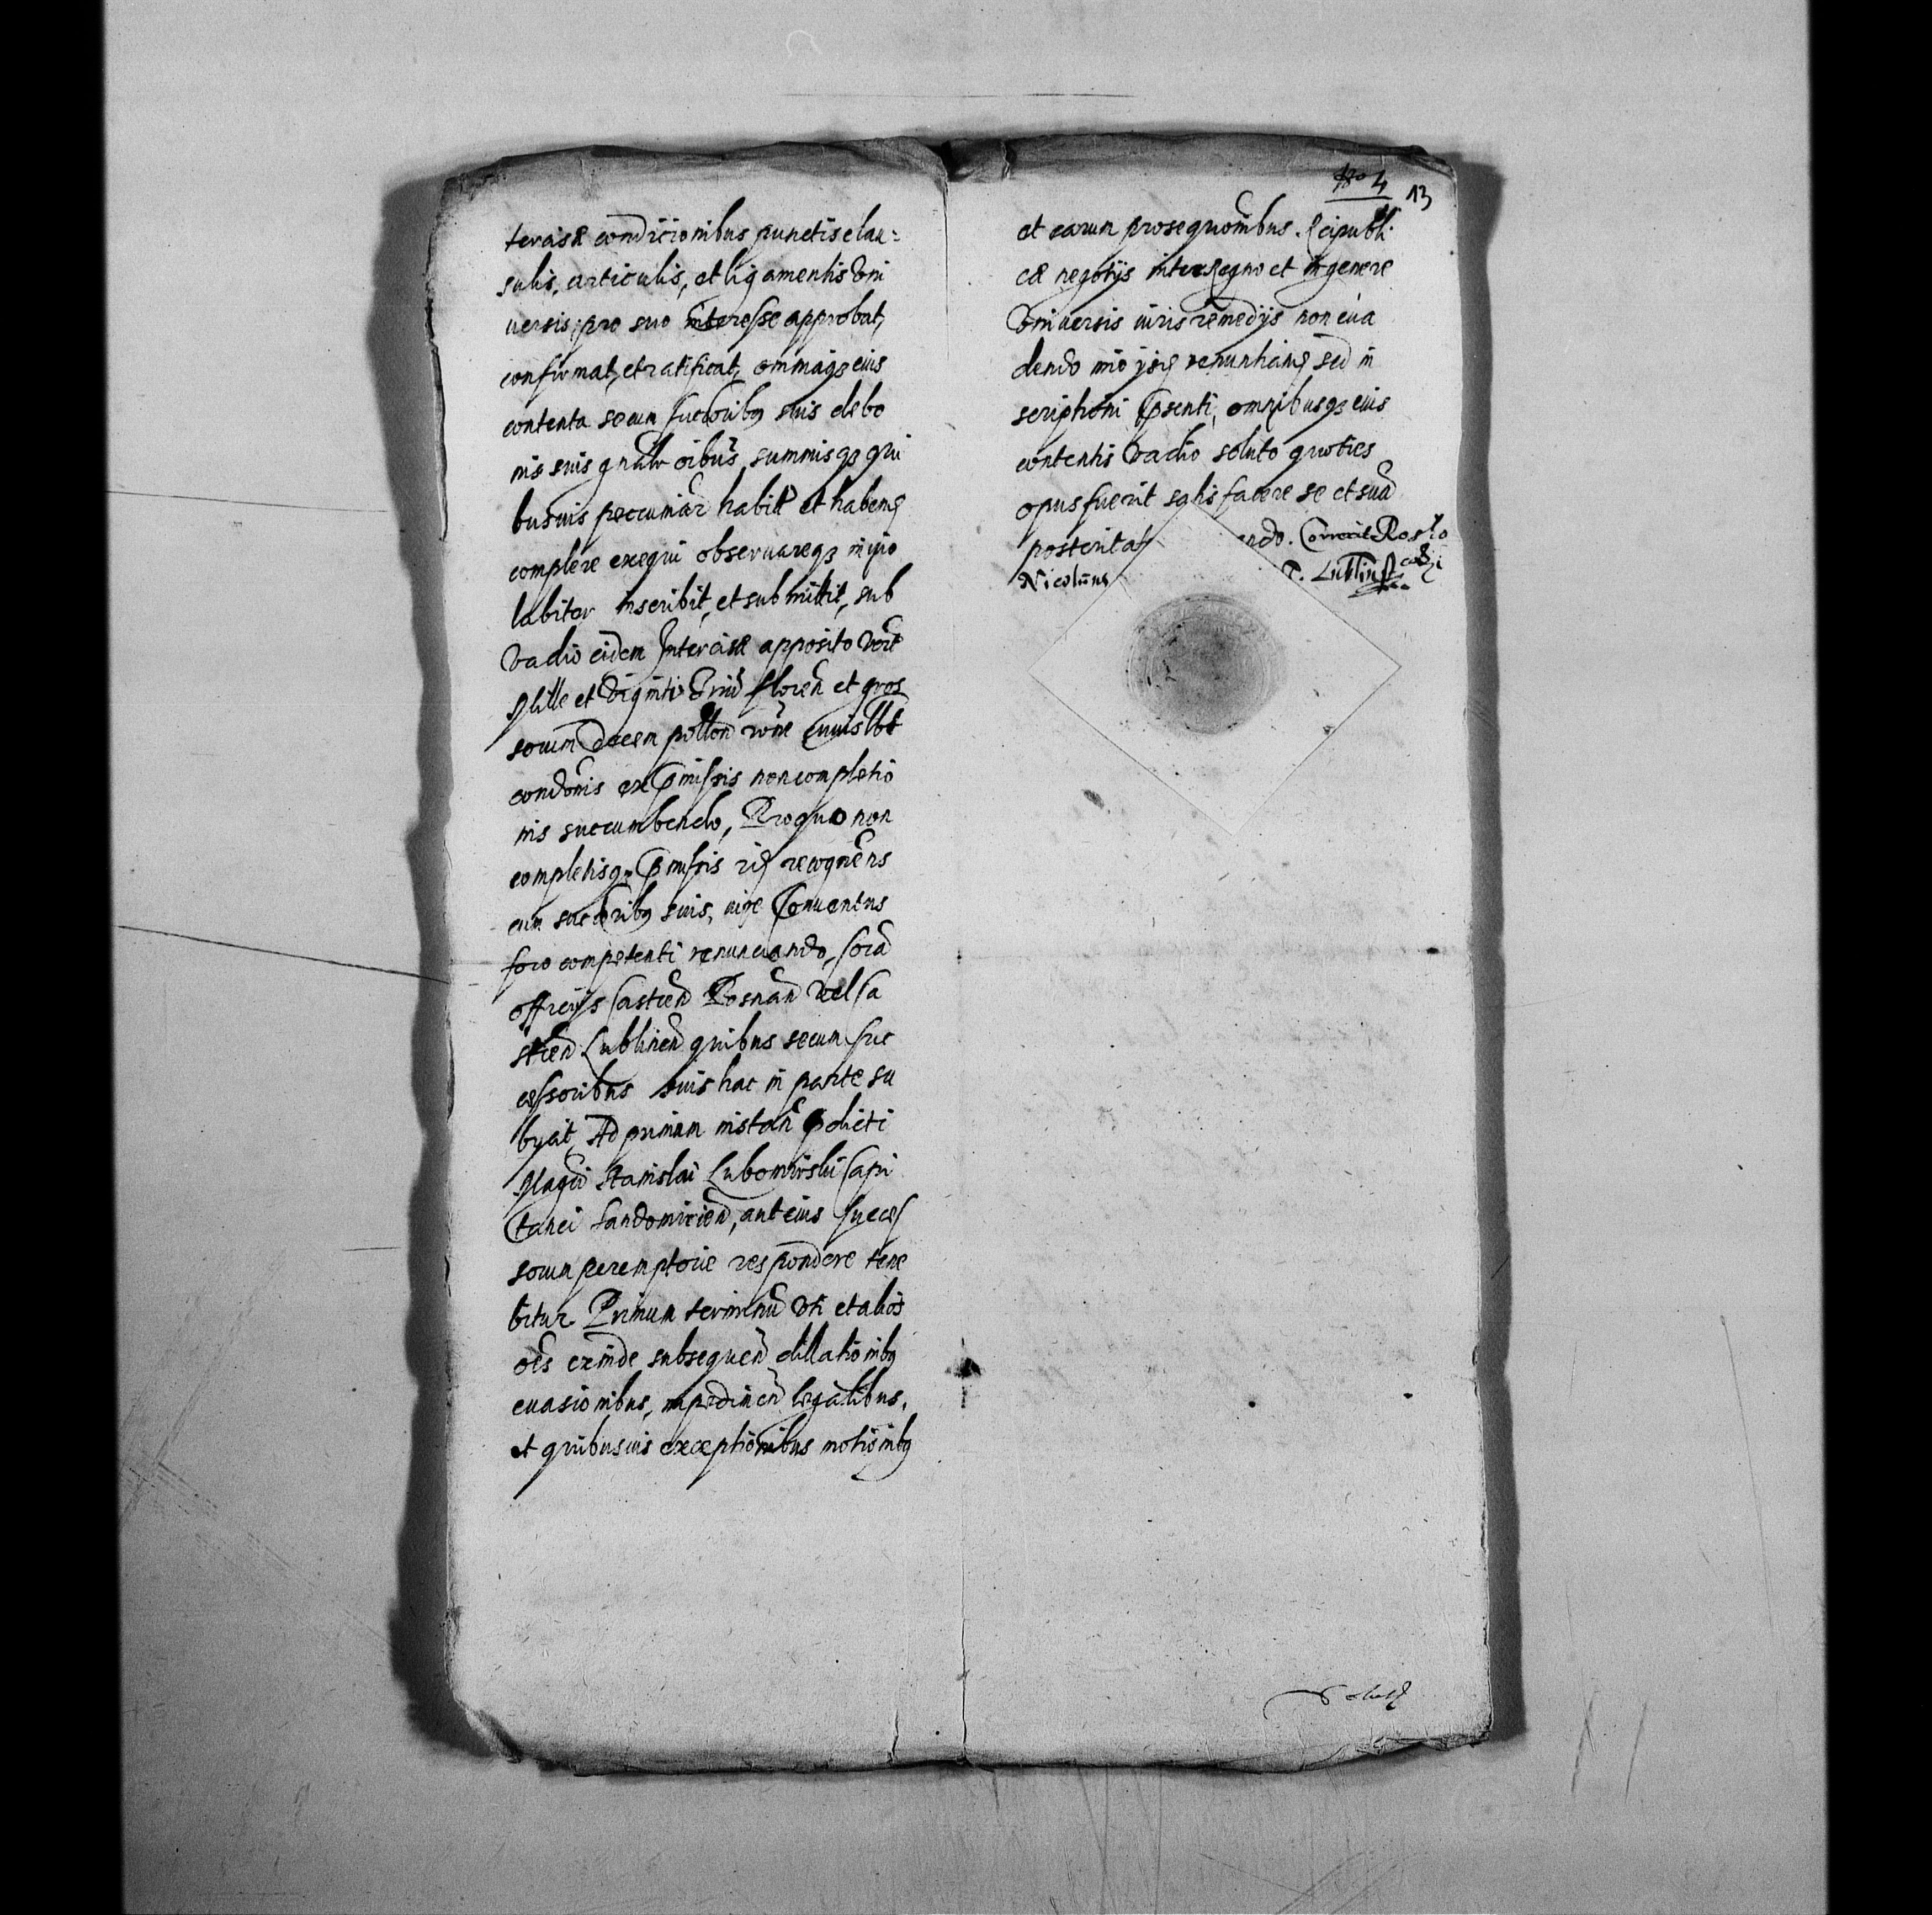 tercisæ condicionibus punctis clau:
sulis, articulis, et ligamentis vni
uersis, pro suo interesse approbat,
confirmat, et ratificat, omniaq3 eius
contenta secum succoribq suis de bo
nis suis gnalr oibus summisq3 qui
busuis pecuniar habit et haben
complere exequi obseruareq3 inuio
labiter inscribit, et submittit, sub
vadio eidem Intercisæ apposito
Mille et viginti floren et gros
sorum decem pollon rone cuiuslbt
condonis ex pmissis non completio
nis succumbendo, Pro quo non
completisq3 pmissis recognens
cum succoribq suis, Conuentus
foro competenti renunciando, cora
officijs Castren Posnan vel Ca
stren Lublinen quibus secum suc
cessoribus suis hac in parte su
byat, Ad primam instan pdicti
Magci Stanislai Lubomirski Capi
tanei Sandomirien, aut eius succes
sorum peremptorie respondere tene
bitur. Primum terminu vti et alios
oes exinde subsequen dillationibq
euasionibus, impedimen legalibus,
et quibusuis exceptionibus motionibq
180 4 13
et earum prosequonibus. Reipubli
cæ negotijs interregno et in genere
vniuersis iuris remedijs non eua
dendo imo renuntians sed in
scriptioni psenti, omnibusq3 eius
contentis vadio soluto quoties
opus fuerit satisfacere se et sua
posterita endo. Correxit Roslo
Nicolaus T. Lublin